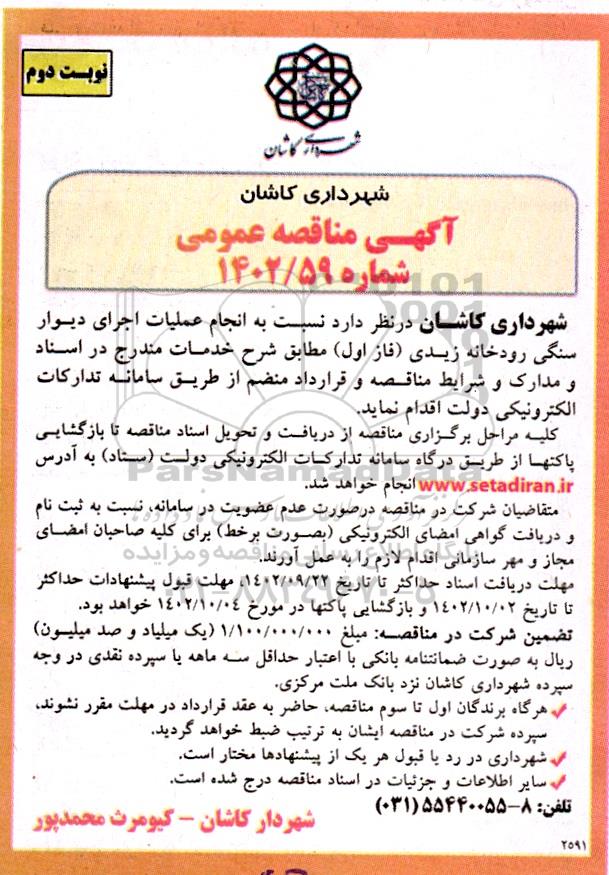 نوبت دوم
شهرداری کاشان
شهرداری کاشان
آگهی مناقصه عمومی
شماره ۱۴۰۲/۵۹
شهرداری کاشان درنظر دارد نسبت به انجام عملیات اجرای دیوار
سنگی رودخانه زیدی (فاز اول) مطابق شرح خدمات مندرج در اسناد
و مدارک و شرایط مناقصه و قرارداد منضم از طریق سامانه تدارکات
الکترونیکی دولت اقدام نماید.
کلیه مراحل برگزاری مناقصه از دریافت و تحویل اسناد مناقصه تا بازگشایی
پاکتها از طریق درگاه سامانه تدارکات الکترونیکی دولت (ستاد) به آدرس
www.setadiran.ir انجام خواهد شد.
متقاضیان شرکت در مناقصه درصورت عدم عضویت در سامانه، نسبت به ثبت نام
و دریافت گواهی امضای الکترونیکی (بصورت برخط) برای کلیه صاحبان امضای
مجاز و مهر سازمانی اقدام لازم را به عمل آورند.
مهلت دریافت اسناد حداکثر تا تاریخ ۱۴۰۲/۰۹/۲۲، مهلت قبول پیشنهادات حداکثر
تا تاریخ ۱۴۰۲/۱۰/۰۲ و بازگشایی پاکتها در مورخ ۱۴۰۲/۱۰/۰۴ خواهد بود.
تضمین شرکت در مناقصه: مبلغ ۱/۱۰۰/۰۰۰/۰۰۰ (یک میلیاد و صد میلیون)
ریال به صورت ضمانتنامه بانکی با اعتبار حداقل سه ماهه یا سپرده نقدی در وجه
سپرده شهرداری کاشان نزد بانک ملت مرکزی.
✓ هرگاه برندگان اول تا سوم مناقصه، حاضر به عقد قرارداد در مهلت مقرر نشوند،
سپرده شرکت در مناقصه ایشان به ترتیب ضبط خواهد گردید.
✓ شهرداری در رد یا قبول هر یک از پیشنهادها مختار است.
✓ سایر اطلاعات و جزئیات در اسناد مناقصه درج شده است.
تلفن: ۸-۵۵۴۴۰۰۵۵ (۰۳۱)
شهردار کاشان - کیومرث محمدپور
۲۵۹۱
ParsNamadData
۰۲۱-۸۸۳۴۹۶۷۰-۵